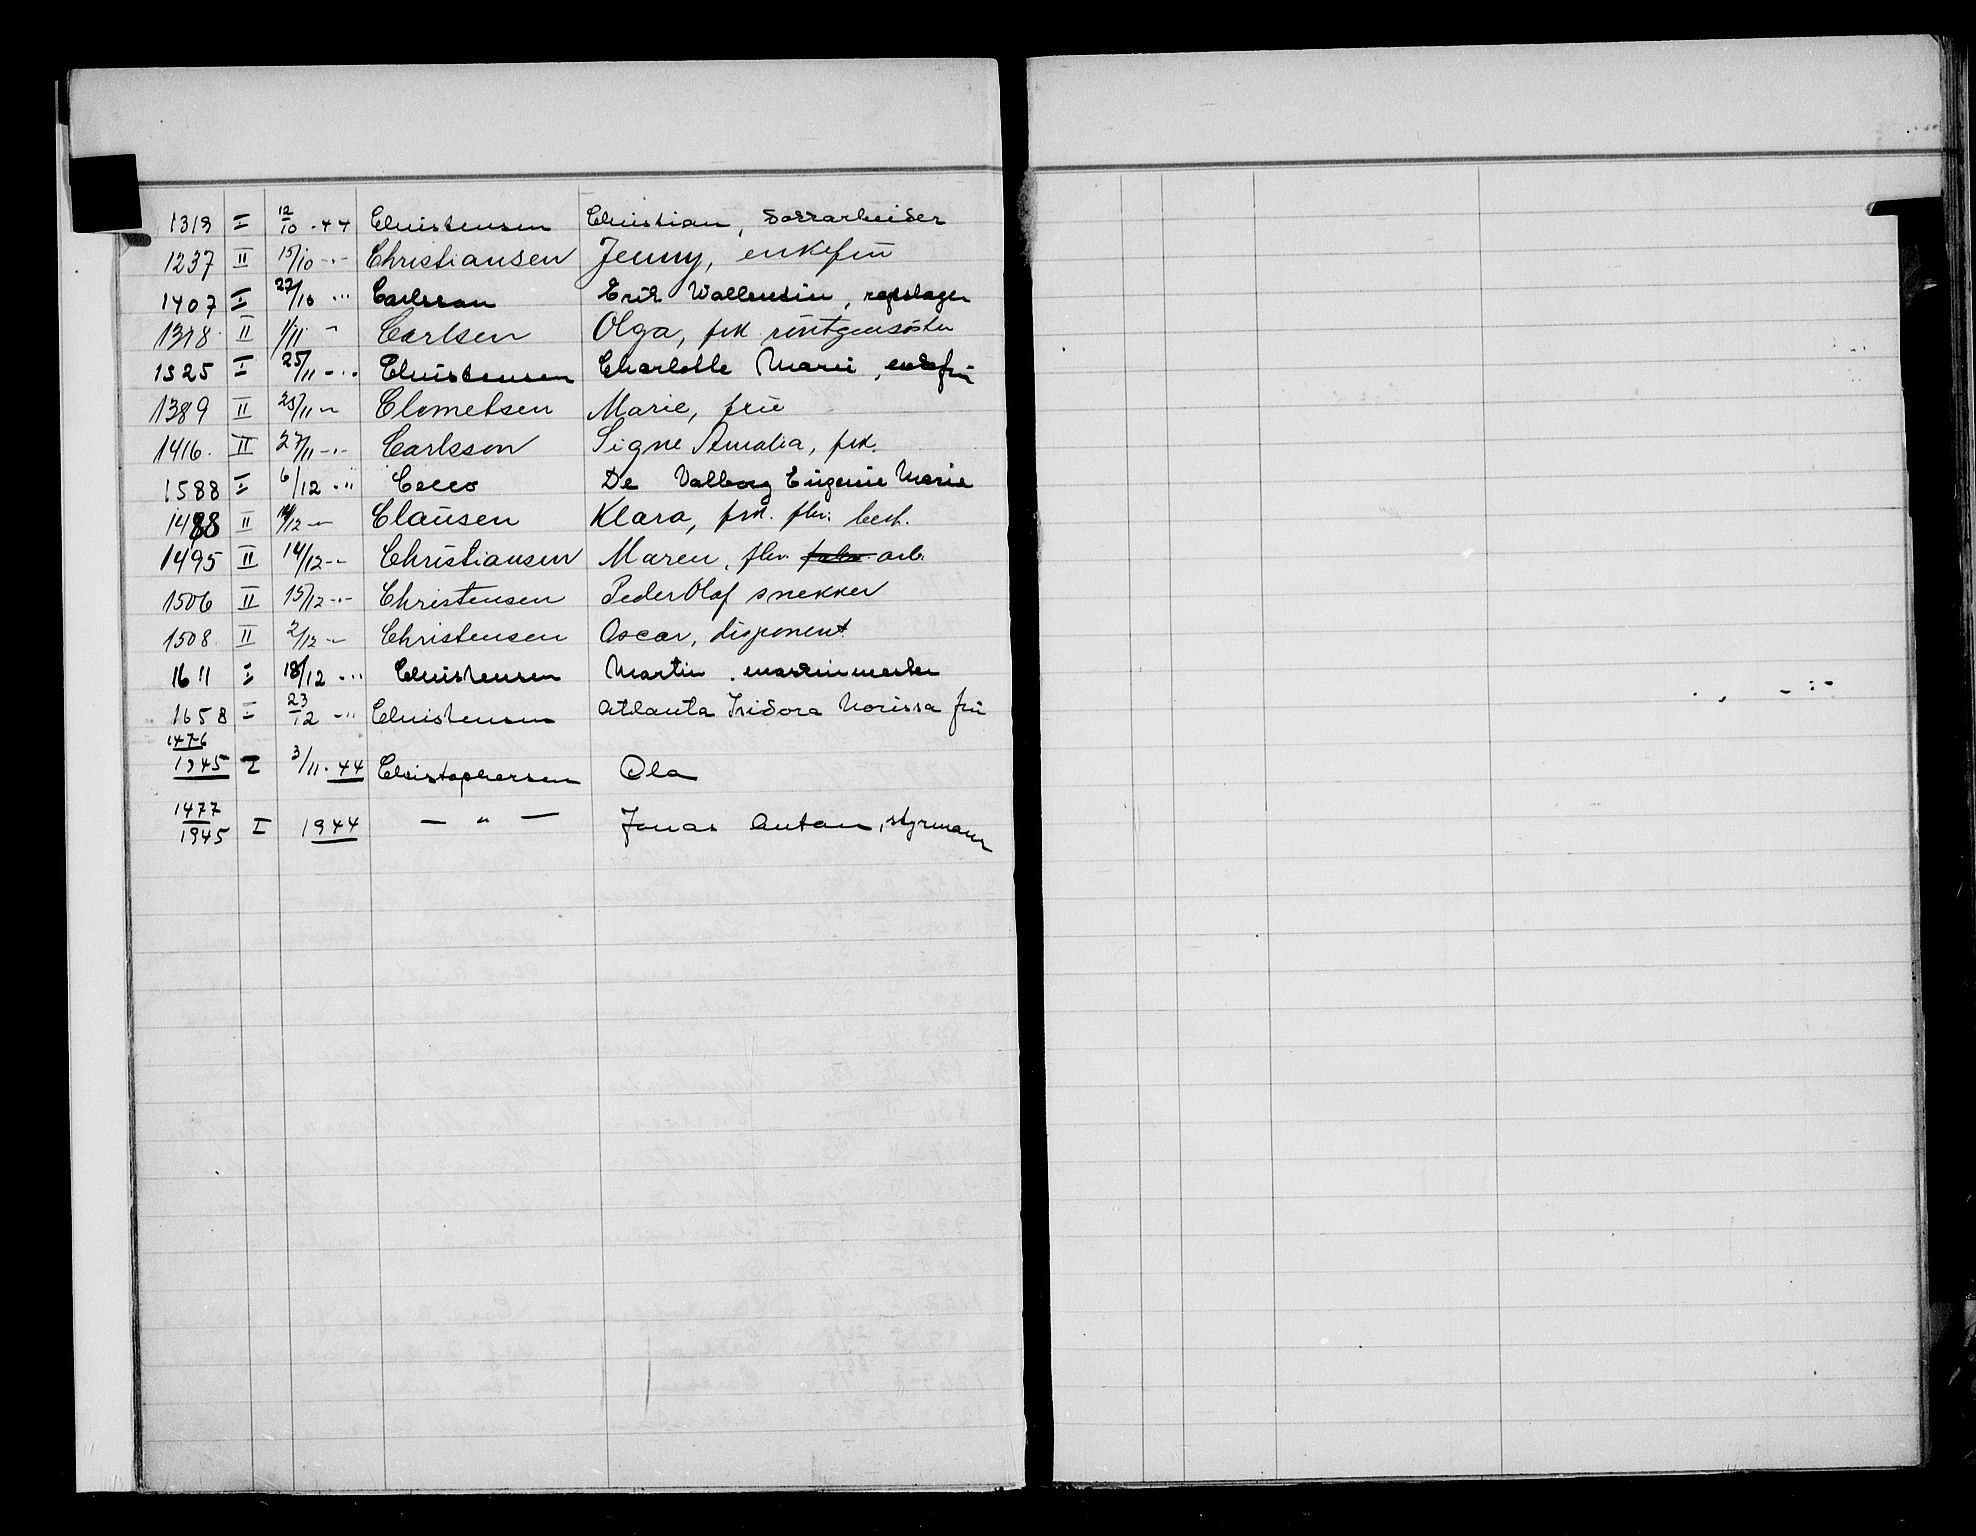 1313 I 12/10 - 44 Christensen Christian,
1237 II 15/10 -"- Christiansen Jenny, enkefru
1407 I 27/10 -"- Carlsson Erik Wallentin, repslager
1378 II 1/11 " Carlsen Olga, frk. röntgensöster
1325 I 25/11 -"- Christensen Charlotte Marie, enkefru
1389 II 25/11 -"- Clemetsen Marie, frue
1416. II 27/11 -"- Carlsson Signe Amalia, frk.
1588 I 6/12 -" Cecco De Valborg Eugenie Marie
1488 II 14/12 -"- Clausen Klara, frk. fhv. best.
1495 II 14/12 -"- Christiansen Maren, fhv. arb.
1506 II 15/12 -"- Christensen Peder Olaf snekker
1508. II 2/12 -"- Christensen Oscar, disponent
1611 I 18/12 -"- Christensen Martin, maskinmester
1658 I 23/12 -"- Christensen Atlanta Isidora Norissa fru
1476/1945 I 3/11 - 44 Christophersen Ola
1477/1945 I 1944 — " — Jonas Anton, styrmann